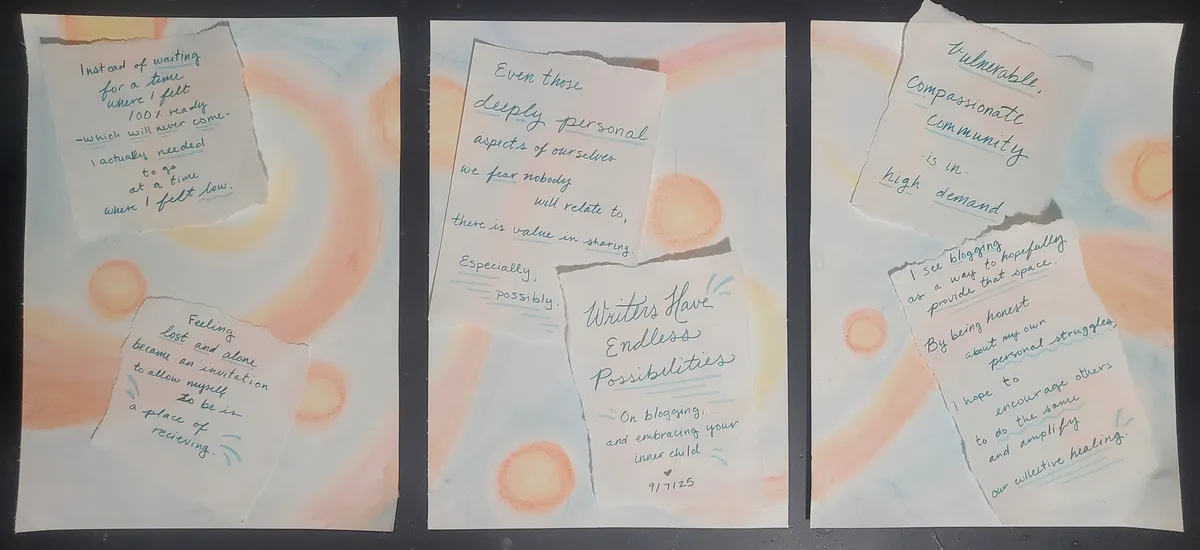 Instead of waiting
for a time
where I felt
100% ready
-which will never come-
I actually needed
to go
at a time
where I felt low.
Feeling
lost and alone
became an invitation
to allow myself
to be in
a place of
recieving.
Even those
deeply personal
aspects of ourselves
we fear nobody
will relate to,
there is value in sharing.
Especially,
possibly.
Writers Have
Endless
Possibilities
On blogging,
and embracing your
inner child
9/7/25
Vulnerable,
Compassionate
community
is in
high demand.
I see blogging
as a way to hopefully
provide that space.
By being honest
about my own
personal struggles,
I hope to
encourage others
to do the same
and amplify
our collective healing.